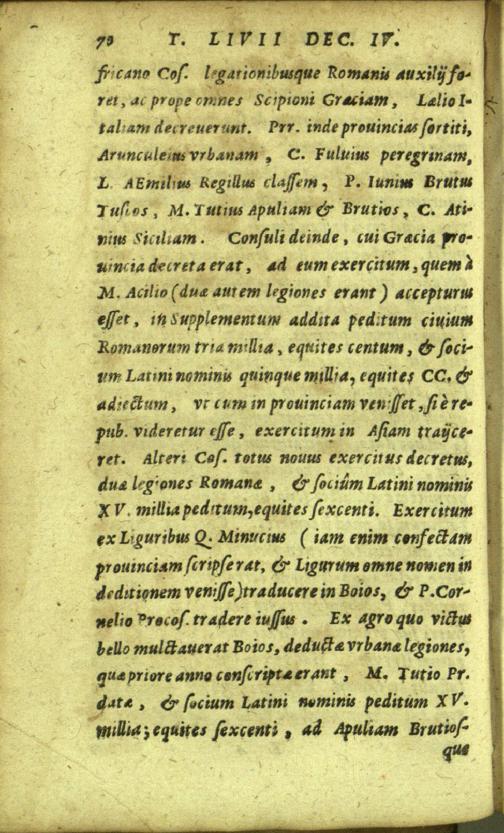 70 T. LIVII DEC. IV.
fricano Cos. legationibusque Romanis auxilij fo-
ret, ac prope omnes Scipioni Græciam, Lælio I-
taliam decreuerunt. Prr. inde prouincias sortiti,
Arunculeius vrbanam, C. Fuluius peregrinam,
L. AEmilius Regillus classem, P. Iunius Brutus
Tuscos, M. Tutius Apuliam & Brutios, C. Ati-
nius Siciliam. Consuli deinde, cui Græcia pro-
uincia decreta erat, ad eum exercitum, quem à
M. Acilio (duæ autem legiones erant) accepturus
esset, in Supplementum addita peditum ciuium
Romanorum tria millia, equites centum, & soci-
um Latini nominis quinque millia, equites CC. &
adiectum, vt cum in prouinciam venisset, si è re-
pub. videretur esse, exercitum in Asiam traijce-
ret. Alteri Cos. totus nouus exercitus decretus,
duæ legiones Romanæ, & sociûm Latini nominis
XV. millia peditum, equites sexcenti. Exercitum
ex Liguribus Q. Minucius (iam enim confectam
prouinciam scripserat, & Ligurum omne nomen in
deditionem venisse) traducere in Boios, & P. Cor-
nelio Procos. tradere iussus. Ex agro quo victos
bello mulctauerat Boios, deductæ vrbanæ legiones,
quæ priore anno conscriptæ erant, M. Tutio Pr.
datæ, & socium Latini nominis peditum XV.
millia; equites sexcenti, ad Apuliam Brutios-
que